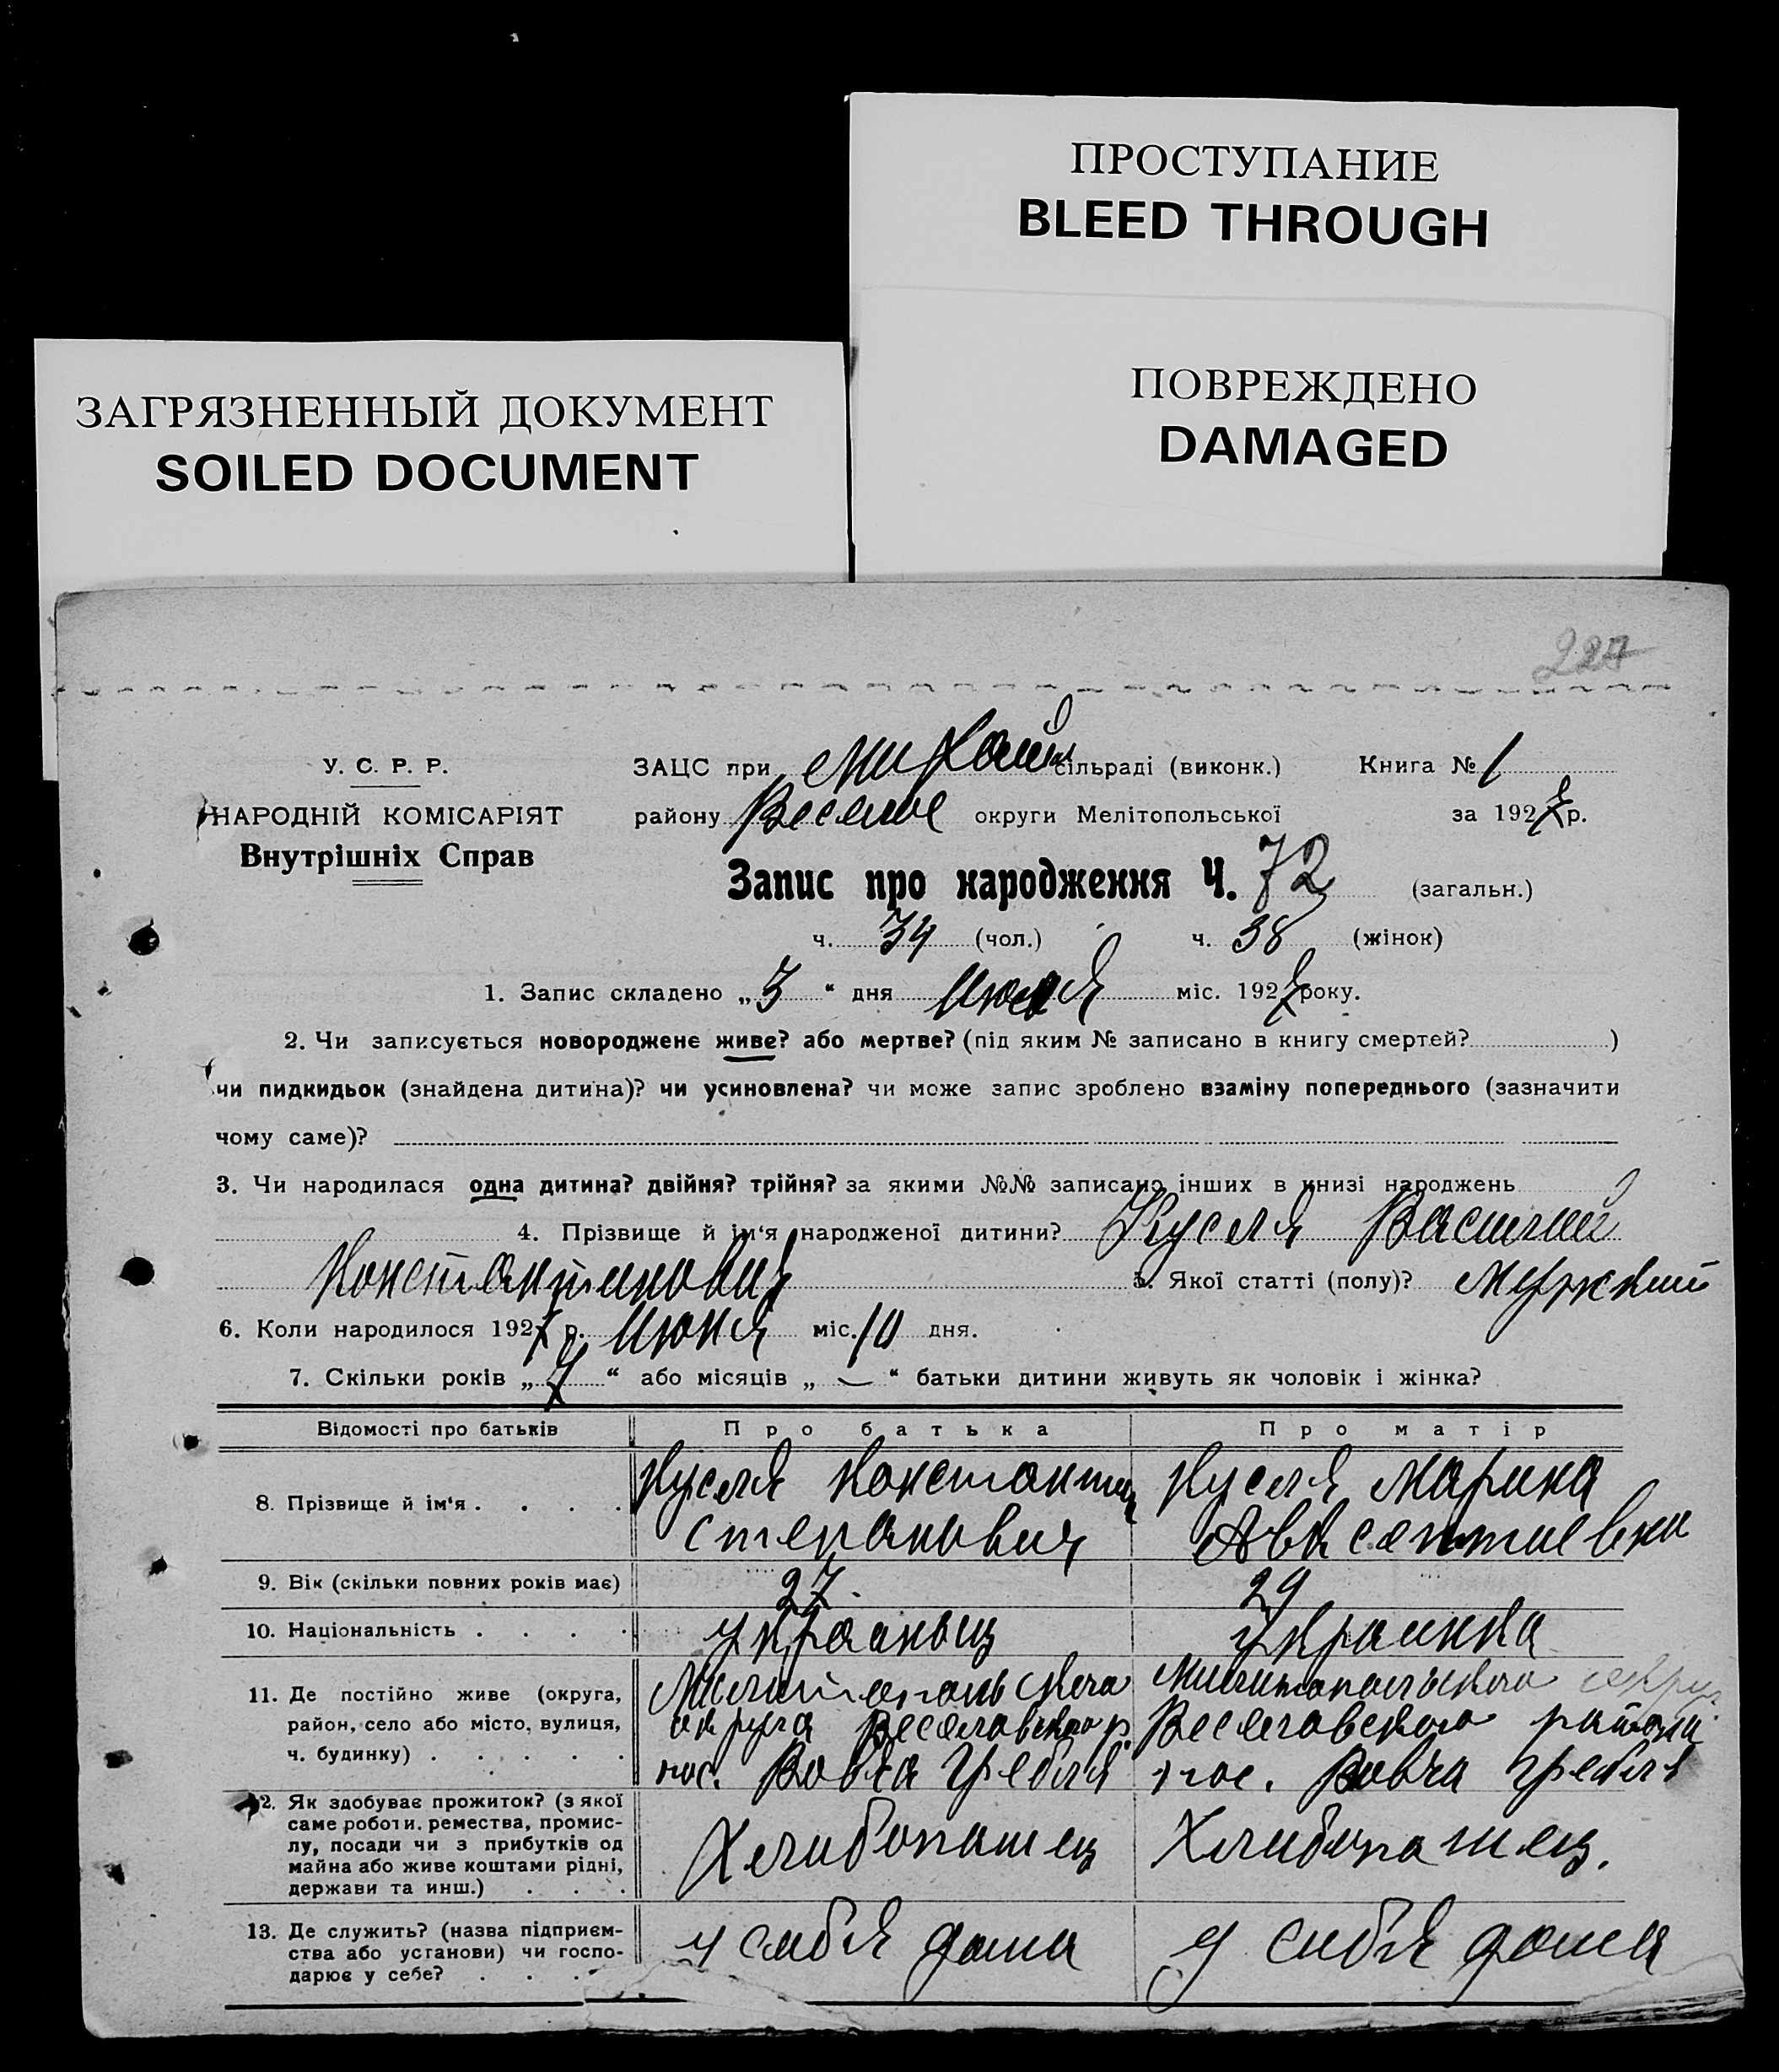 ПРОСТУПАНИЕ
BLEED THROUGH
ПОВРЕЖДЕНО
DAMAGED
ЗАГРЯЗНЕННЫЙ ДОКУМЕНТ
SOILED DOCUMENT
У. С. Р. Р.
НАРОДНІЙ КОМІСАРІЯТ
Внутрішніх Справ
ЗАЦС при Михайл сільраді (виконк.) Книга № 1
району Веселое округи Мелітопольської за 1927 р.
Запис про народження Ч. 72 (загальн.)
ч. 34 (чол.) ч. 38 (жінок)
1. Запис складено „3“ дня Июля міс. 1927 року.
2. Чи записується новороджене живе? або мертве? (під яким № записано в книгу смертей? )
чи пидкидьок (знайдена дитина)? чи усиновлена? чи може запис зроблено взаміну попереднього (зазначити
чому саме)?
3. Чи народилася одна дитина? двійня? трійня? за якими №№ записано інших в книзі народжень
4. Прізвище й ім'я народженої дитини? Кусля Василий
Константинович 5. Якої статті (полу)? Мужский
6. Коли народилося 1927 р. Июня міс. 10 дня.
7. Скільки років „7“ або місяців „—“ батьки дитини живуть як чоловік і жінка?
Відомості про батьків Про батька Про матір
8. Прізвище й ім'я . . . . Кусля Константин Кусля Марина
Степанович Авксентиевна
9. Вік (скільки повних років має) 27. 29
10. Національність . . . . украиныц украинка
11. Де постійно живе (округа, Милитопольского Милитопольского округ
район, село або місто, вулиця, округа Веселовского р. Веселовского района
ч. будинку) . . . . . пос. Вовча Гребля пос. Вовча Гребля
12. Як здобуває прожиток? (з якої
саме роботи, ремества, промис-
лу, посади чи з прибутків од Хлибопашец Хлибопашец.
майна або живе коштами рідні,
держави та инш.) . . .
13. Де служить? (назва підприєм-
ства або установи) чи госпо- у сибя дома у сибя дома
дарює у себе? . . . .